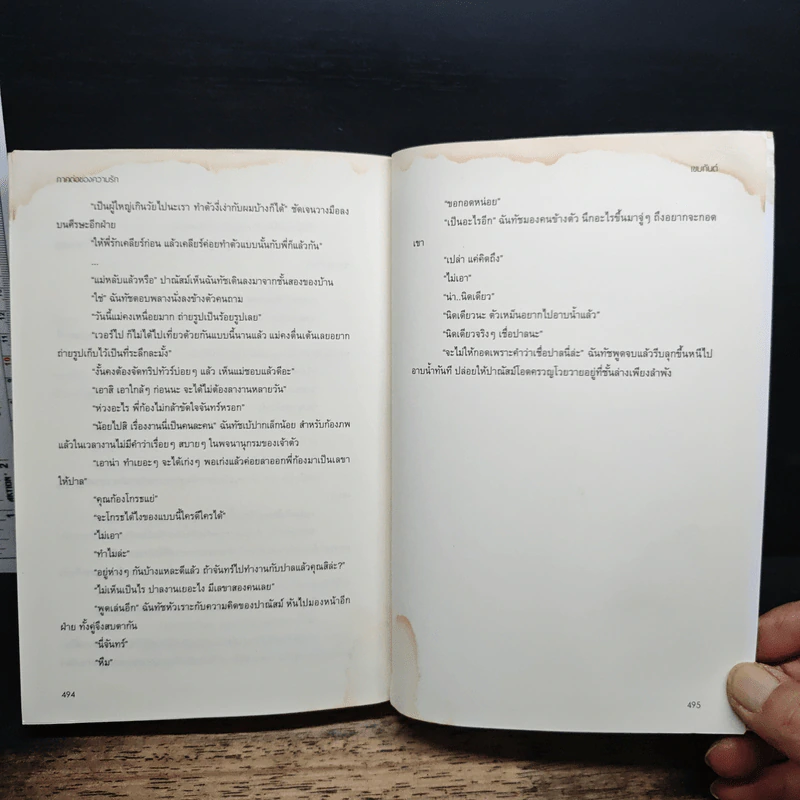 ภาคต่อของความรัก
"เป็นผู้ใหญ่เกินวัยไปนะเรา ทำตัวงี่เง่ากับผมบ้างก็ได้" ชัดเจนวางมือลง
บนศีรษะอีกฝ่าย
"ให้พี่รักเคลียร์ก่อน แล้วเคลียร์ค่อยทำตัวแบบนั้นกับพี่ก็แล้วกัน"
....
"แม่หลับแล้วหรือ" ปาณัสม์เห็นฉันทัชเดินลงมาจากชั้นสองของบ้าน
"ใช่" ฉันทัชตอบพลางนั่งลงข้างตัวคนถาม
"วันนี้แม่คงเหนื่อยมาก ถ่ายรูปเป็นร้อยรูปเลย"
"เวอร์ไป ก็ไม่ได้ไปเที่ยวด้วยกันแบบนี้นานแล้ว แม่คงตื่นเต้นเลยอยาก
ถ่ายรูปเก็บไว้เป็นที่ระลึกละมั้ง"
"งั้นคงต้องจัดทริปทัวร์บ่อยๆ แล้ว เห็นแม่ชอบแล้วดีอะ"
"เอาสิ เอาใกล้ๆ ก่อนนะ จะได้ไม่ต้องลางานหลายวัน"
"ห่วงอะไร พี่ก้องไม่กล้าขัดใจจันทร์หรอก"
"น้อยไปสิ เรื่องงานนี่เป็นคนละคน" ฉันทัชเบ้ปากเล็กน้อย สำหรับก้องภพ
แล้วในเวลางานไม่มีคำว่าเรื่อยๆ สบายๆ ในพจนานุกรมของเจ้าตัว
"เอาน่า ทำเยอะๆ จะได้เก่งๆ พอเก่งแล้วค่อยลาออกพี่ก้องมาเป็นเลขา
ให้ปาล"
"คุณก้องโกรธแย่"
"จะโกรธได้ไงของแบบนี้ใครดีใครได้"
"ไม่เอา"
"ทำไมล่ะ"
"อยู่ห่างๆ กันบ้างแหละดีแล้ว ถ้าจันทร์ไปทำงานกับปาลแล้วคุณสิล่ะ?"
"ไม่เห็นเป็นไร ปาลงานเยอะไง มีเลขาสองคนเลย"
"พูดเล่นอีก" ฉันทัชหัวเราะกับความคิดของปาณัสม์ หันไปมองหน้าอีก
ฝ่าย ทั้งคู่จึงสบตากัน
"นี่จันทร์"
"หืม"
494
เขมกันต์
"ขอกอดหน่อย"
"เป็นอะไรอีก" ฉันทัชมองคนข้างตัว นึกอะไรขึ้นมาจู่ๆ ถึงอยากจะกอด
เขา
"เปล่า แค่คิดถึง"
"ไม่เอา"
"น่า..นิดเดียว"
"นิดเดียวนะ ตัวเหม็นอยากไปอาบน้ำแล้ว"
"นิดเดียวจริงๆ เชื่อปาลนะ"
"จะไม่ให้กอดเพราะคำว่าเชื่อปาลนี่ล่ะ" ฉันทัชพูดจบแล้วรีบลุกขึ้นหนีไป
อาบน้ำทันที ปล่อยให้ปาณัสม์โอดครวญโวยวายอยู่ที่ชั้นล่างเพียงลำพัง
495